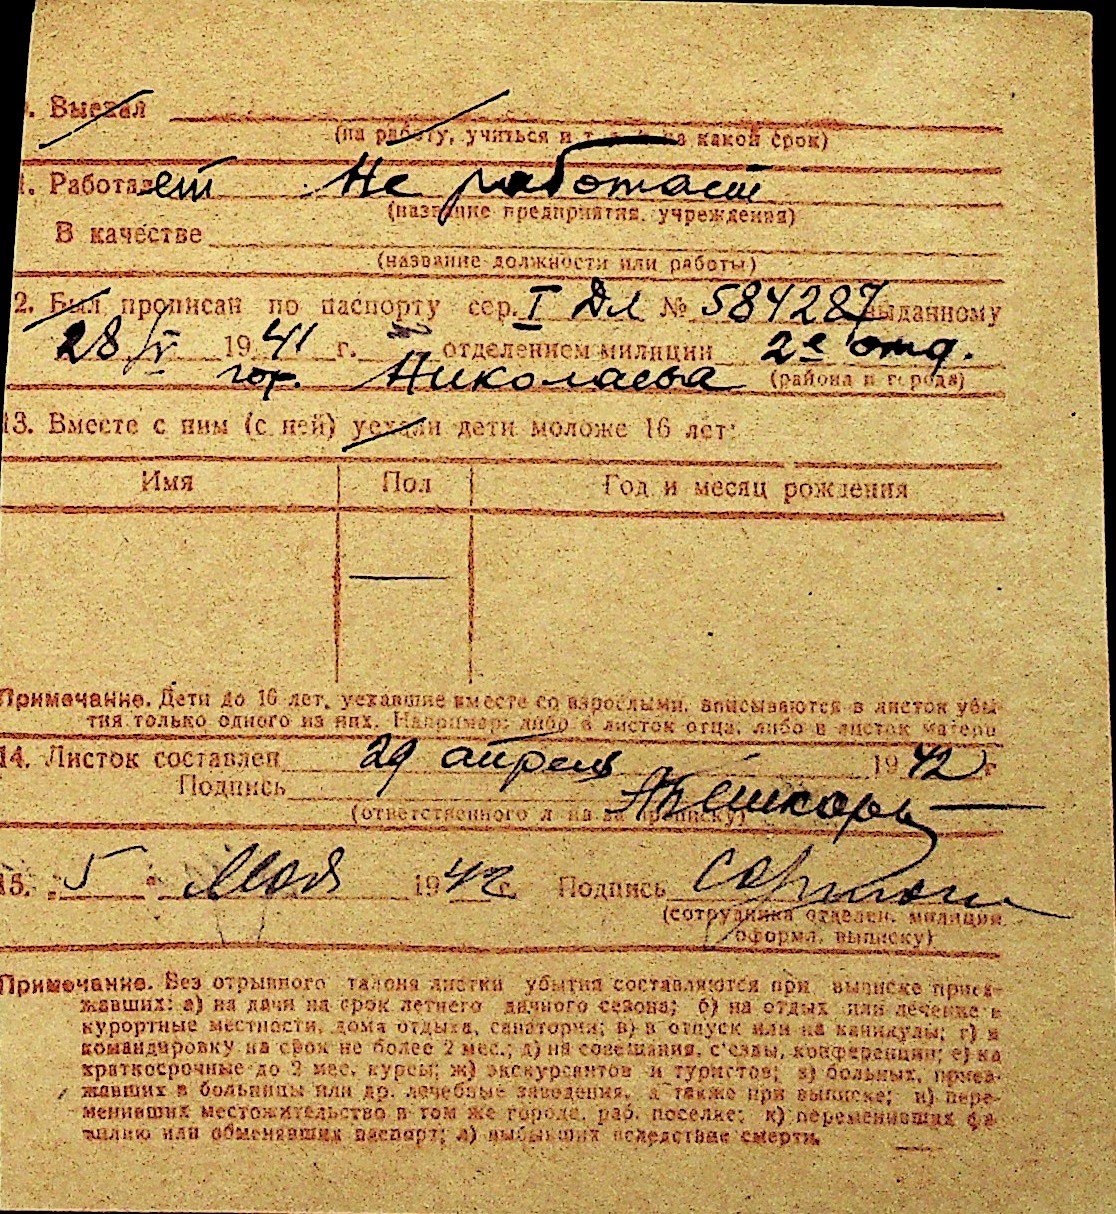 . Выехал
(на работу, учиться и т. д. и на какой срок)
1. Работает Не работает
(название предприятия, учреждения)
В качестве
(название должности или работы)
2. Был прописан по паспорту сер. I ДЛ № 584287 выданному
28/V 1941 г. отделением милиции 2е отд.
гор. Николаева (района и города)
13. Вместе с ним (с ней) уехали дети моложе 16 лет:
Имя Пол Год и месяц рождения
—
Примечание. Дети до 16 лет, уехавшие вместе со взрослыми, вписываются в листок убы-
тия только одного из них. Например: либо в листок отца, либо в листок матери
14. Листок составлен 29 апреля 1942 г
Подпись
(ответственного л на за прописку)
15. „5" Мая 1942 г. Подпись
(сотрудника отделен. милиции,
оформл. выписку)
Примечание. Без отрывного талона листки убытия составляются при выписке приез-
жавших: а) на дачи на срок летнего дачного сезона; б) на отдых или лечение в
курортные местности, дома отдыха, санатории; в) в отпуск или на каникулы; г) в
командировку на срок не более 2 мес.; д) на совещания, с'езды, конференции; е) на
краткосрочные до 2 мес. курсы; ж) экскурсантов и туристов; з) больных, приез-
жавших в больницы или др. лечебные заведения, а также при выписке; и) пере-
менивших местожительство в том же городе, раб. поселке; к) переменивших фа-
милию или обменявших паспорт; л) выбывших вследствие смерти.